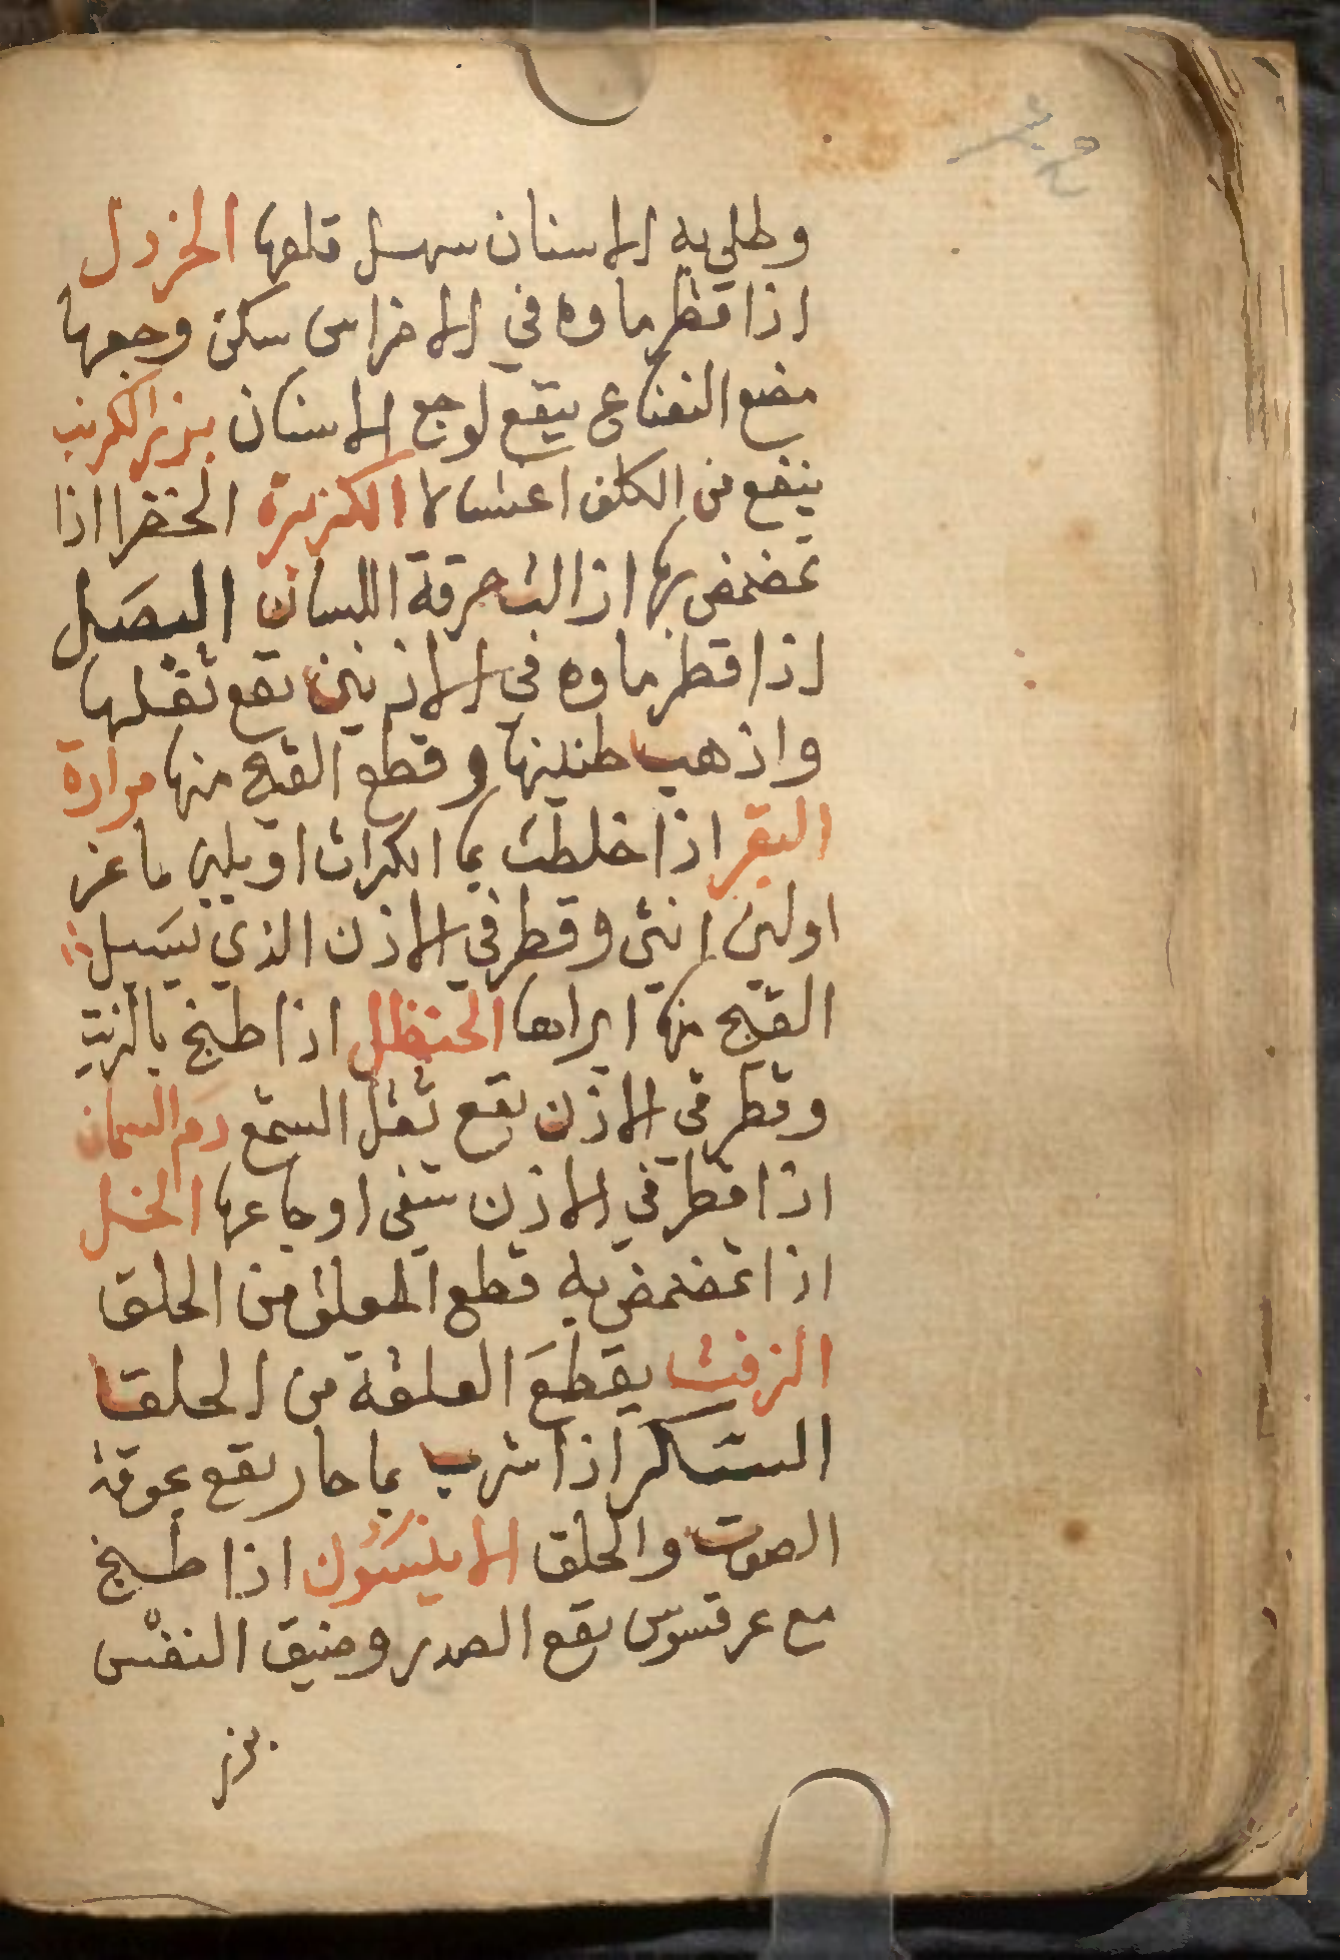 وطلي به الاسنان سهل قلعها الخردل
اذا قطر ماوه في الاضراس سكن وجعها
مضع النعناع ينفع لوجع الاسنان بزر الكرنب
ينفع من الكلف اغتسالا الكزبرة الخضرا اذا
تمضمض بها ازالت حرقة اللسان البصل
اذا قطر ماوه في الاذنين نفع ثقلها
واذهب طنينها وقطع القيح منها مرارة
البقر اذا خلطت بما الكراث او بلبن ماعز
او لبن انثى وقطر في الاذن الذي يسيل
القيح منها ابراها الحنظل اذا طبخ بالزيت
وقطر في الاذن نفع ثقل السمع دم السمان
اذا قطر في الاذن شفى اوجاعها الخل
اذا تمضمض به قطع العلق من الحلق
الزفت يقطع العلقة من الحلق
السكر اذا شرب بما حار نفع بحوقة
الصوت والحلق الاينسون اذا طبخ
مع عرقسوس نفع الصدر وضيق النفس
بزر